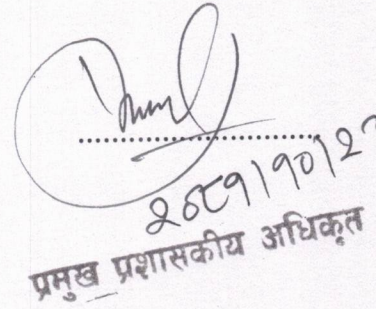 २०८१।१०।२१
प्रमुख प्रशासकीय अधिकृत